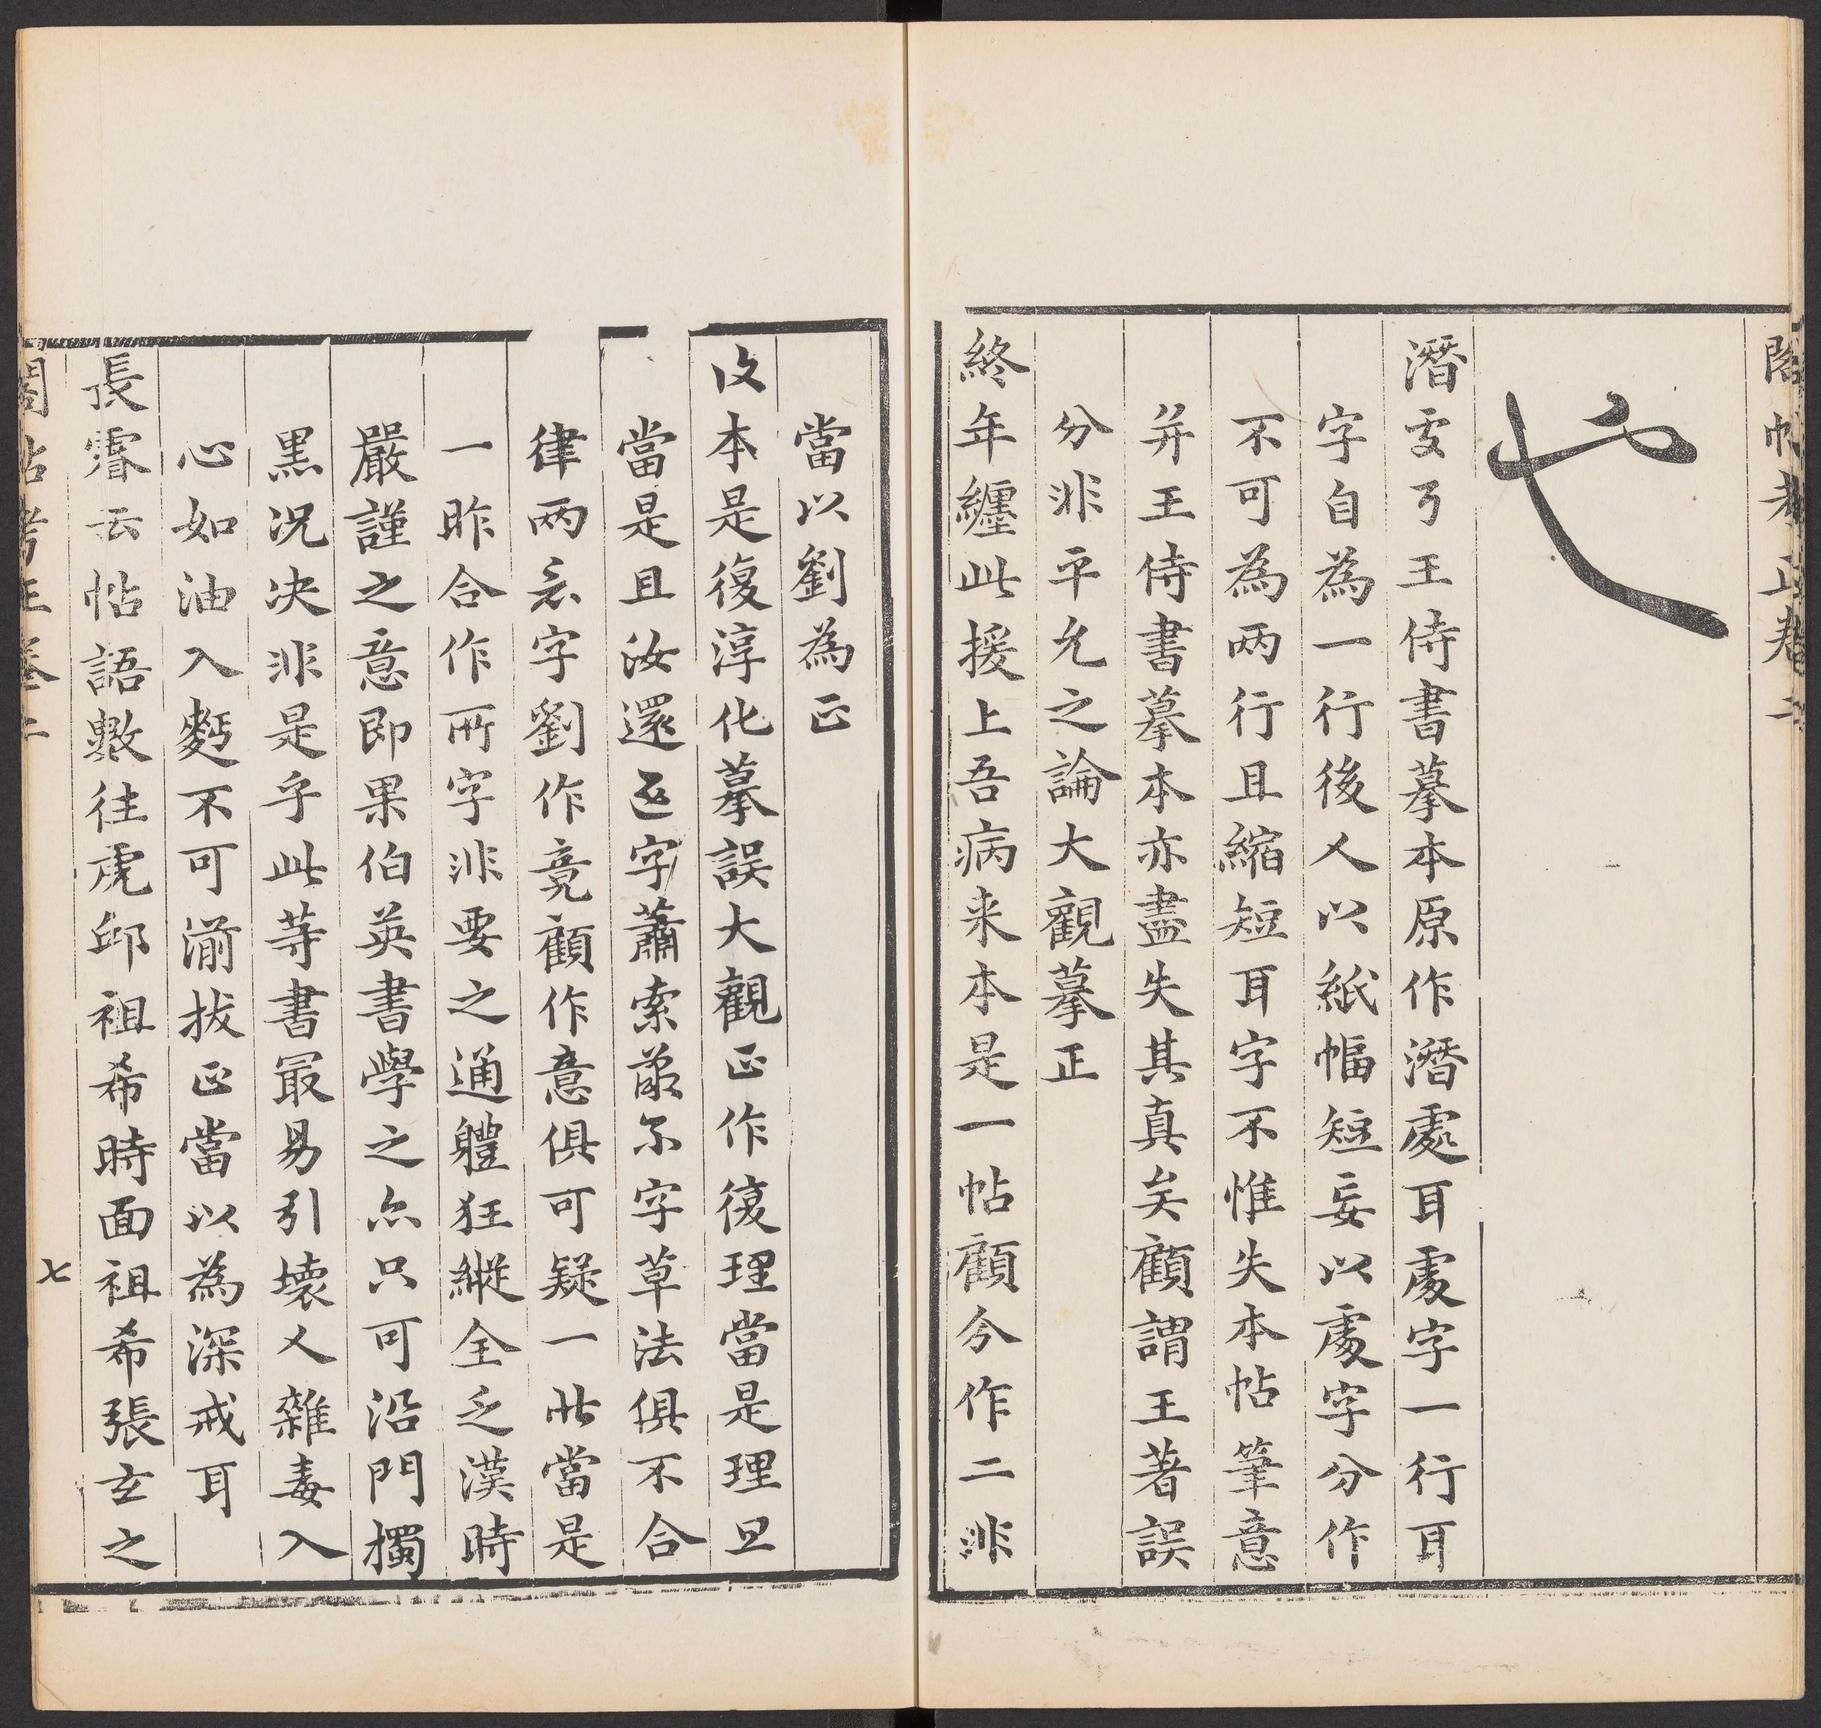 閣帖考正卷二
潛䖏丂王侍書摹本原作潛處耳處字一行耳
字自為一行後人以紙幅短妄以處字分作
不可為兩行且縮短耳字不惟失本帖筆意
并王侍書摹本亦盡失其真矣顧謂王著誤
分非平允之論大觀摹正
終年纏此援上吾病来本是一帖顧今作二非
當以劉為正
汶本是復淳化摹誤大觀正作復理當是理旦
當是且汝還字蕭索字草法俱不合
律两字劉作竟顧作意俱可疑一此當是
一昨合作所字非要之通軆狂縱全乏漢時
嚴謹之意即果伯英書學之亦只可沿門擉
黒况决非是乎此等書冣易引壊人雜毒入
心如油入麫不可湔拔正當以為深戒耳
長睿云帖語數往虎邱祖希時面祖希張玄之
閣帖考正卷二
七